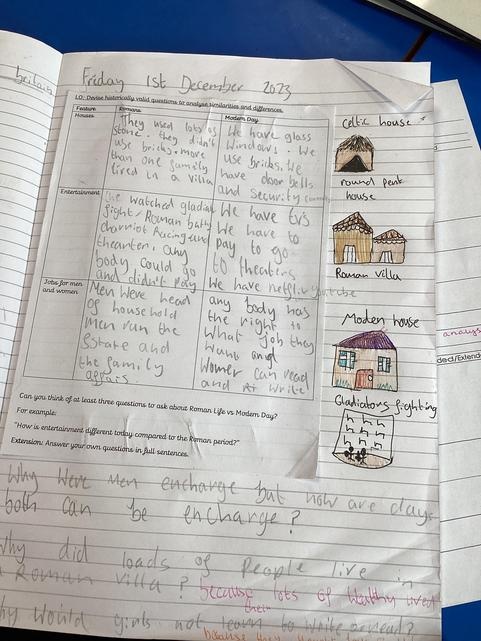 Friday 1st December 2023
LO: Devise historically valid questions to analyse similarities and differences.
Feature
Romans
Modern Day
Houses
They used lots of
stone. they didn't
use bricks. more
than one family
lived in a villa
We have glass
windows. We
use bricks. We
have door bells
and security
Entertainment
watched gladia
fight/Roman
chariot racing and
theater. any
body could go
and didn't pay
We have tvs
We have to
pay to go
to theaters
We have netflix youtube
Jobs for men
and women
Men were head
of household
Men run the
estate and
the family
affairs.
any body has
the right to
what job they
want and
women can read
and write
Can you think of at least three questions to ask about Roman Life vs Modern Day?
For example:
"How is entertainment different today compared to the Roman period?"
Extension: Answer your own questions in full sentences.
Celtic house
round
house
Roman villa
Moden house
Gladiators fighting
Why were men encharge but now are days
both can be encharge?
why did loads of people live in
a Roman villa? because lots of wealthy lived
their
why would girls not learn to write or read?
because they
analys
ded/Extend